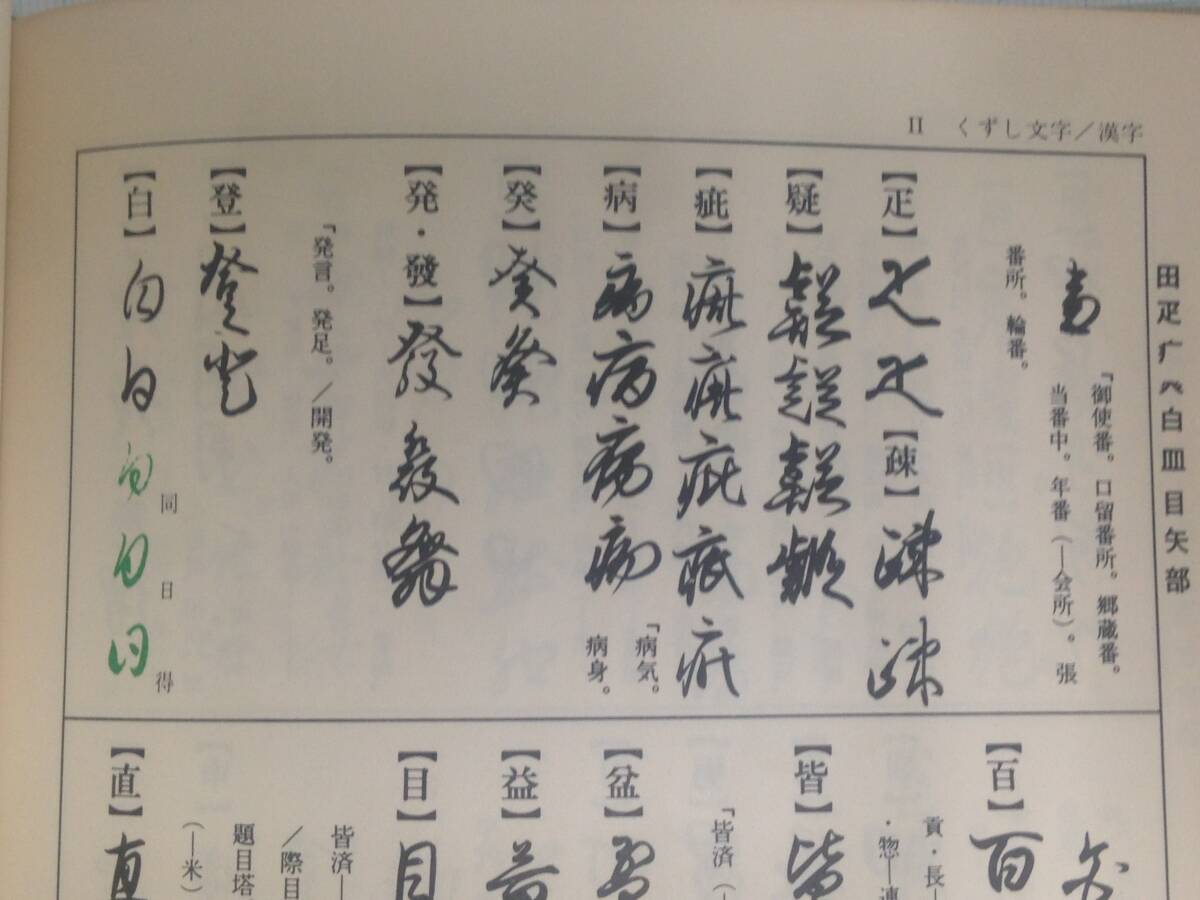 II くずし文字／漢字
田疋疒癶白皿目矢部
「御使番。口留番所。郷蔵番。
当番中。年番（―会所）。張
番所。輪番。
【疋】
【疎】
【疑】
【疵】
【病】
「病気。
病身。
【癸】
【発・發】
「発言。発足。／開発。
【登】
【白】
同 日 得
【百】
貢・長―
・惣―連
【皆】
「皆済（―
【盆】
【益】
【目】
皆済―
／際目
題目塔
（―米）
【直】